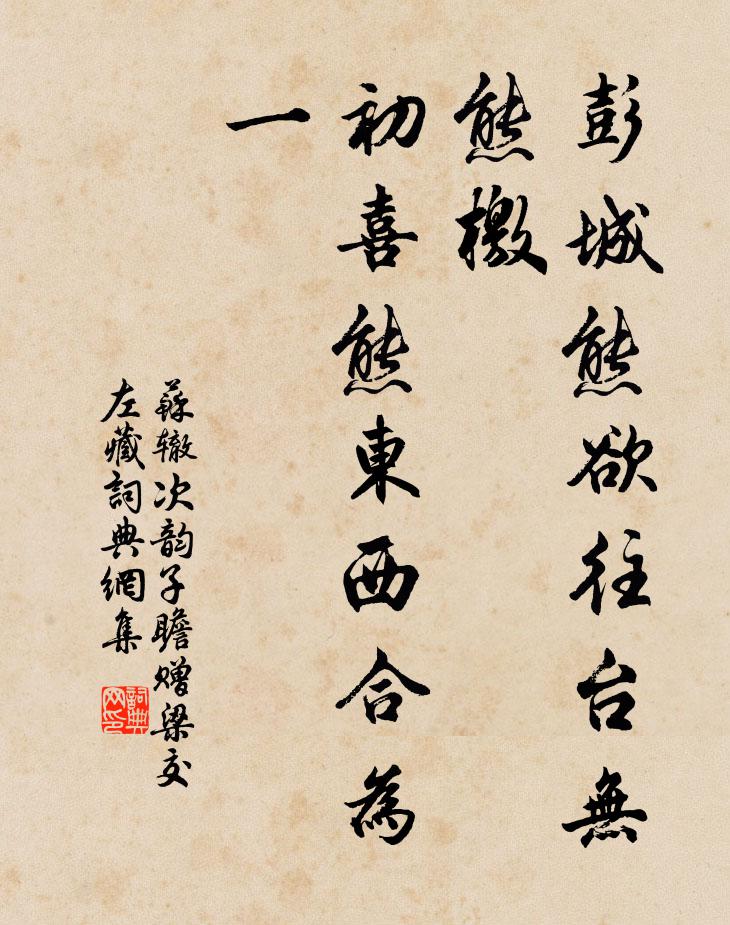 彭城熊欲往台無
熊檄
初喜熊東西合為
一
蘇辙次韵子瞻赠梁交
左藏詞典網集
詞典
网印